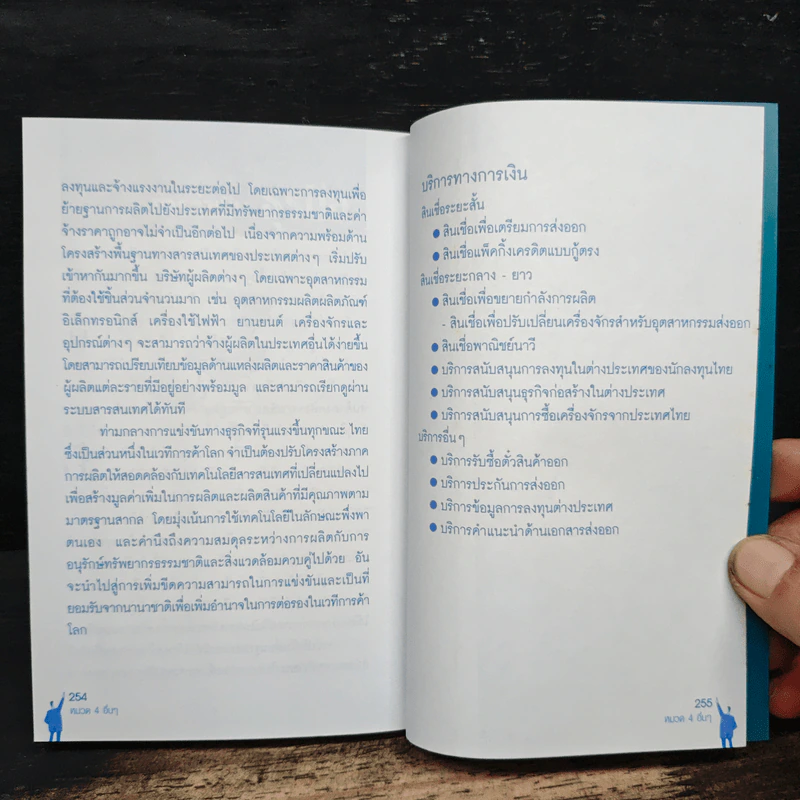 ลงทุนและจ้างแรงงานในระยะต่อไป โดยเฉพาะการลงทุนเพื่อ
ย้ายฐานการผลิตไปยังประเทศที่มีทรัพยากรธรรมชาติและค่า
จ้างราคาถูกอาจไม่จำเป็นอีกต่อไป เนื่องจากความพร้อมด้าน
โครงสร้างพื้นฐานทางสารสนเทศของประเทศต่างๆ เริ่มปรับ
เข้าหากันมากขึ้น บริษัทผู้ผลิตต่างๆ โดยเฉพาะอุตสาหกรรม
ที่ต้องใช้ชิ้นส่วนจำนวนมาก เช่น อุตสาหกรรมผลิตผลิตภัณฑ์
อิเล็กทรอนิกส์ เครื่องใช้ไฟฟ้า ยานยนต์ เครื่องจักรและ
อุปกรณ์ต่างๆ จะสามารถว่าจ้างผู้ผลิตในประเทศอื่นได้ง่ายขึ้น
โดยสามารถเปรียบเทียบข้อมูลด้านแหล่งผลิตและราคาสินค้าของ
ผู้ผลิตแต่ละรายที่มีอยู่อย่างพร้อมมูล และสามารถเรียกดูผ่าน
ระบบสารสนเทศได้ทันที
ท่ามกลางการแข่งขันทางธุรกิจที่รุนแรงขึ้นทุกขณะ ไทย
ซึ่งเป็นส่วนหนึ่งในเวทีการค้าโลก จำเป็นต้องปรับโครงสร้างภาค
การผลิตให้สอดคล้องกับเทคโนโลยีสารสนเทศที่เปลี่ยนแปลงไป
เพื่อสร้างมูลค่าเพิ่มในการผลิตและผลิตสินค้าที่มีคุณภาพตาม
มาตรฐานสากล โดยมุ่งเน้นการใช้เทคโนโลยีในลักษณะพึ่งพา
ตนเอง และคำนึงถึงความสมดุลระหว่างการผลิตกับการ
อนุรักษ์ทรัพยากรธรรมชาติและสิ่งแวดล้อมควบคู่ไปด้วย อัน
จะนำไปสู่การเพิ่มขีดความสามารถในการแข่งขันและเป็นที่
ยอมรับจากนานาชาติเพื่อเพิ่มอำนาจในการต่อรองในเวทีการค้า
โลก
254
หมวด 4 อื่นๆ
บริการทางการเงิน
สินเชื่อระยะสั้น
● สินเชื่อเพื่อเตรียมการส่งออก
● สินเชื่อแพ็คกิ้งเครดิตแบบกู้ตรง
สินเชื่อระยะกลาง - ยาว
● สินเชื่อเพื่อขยายกำลังการผลิต
- สินเชื่อเพื่อปรับเปลี่ยนเครื่องจักรสำหรับอุตสาหกรรมส่งออก
● สินเชื่อพาณิชย์นาวี
● บริการสนับสนุนการลงทุนในต่างประเทศของนักลงทุนไทย
● บริการสนับสนุนธุรกิจก่อสร้างในต่างประเทศ
● บริการสนับสนุนการซื้อเครื่องจักรจากประเทศไทย
บริการอื่นๆ
● บริการรับซื้อตั๋วสินค้าออก
● บริการประกันการส่งออก
● บริการข้อมูลการลงทุนต่างประเทศ
● บริการคำแนะนำด้านเอกสารส่งออก
255
หมวด 4 อื่นๆ